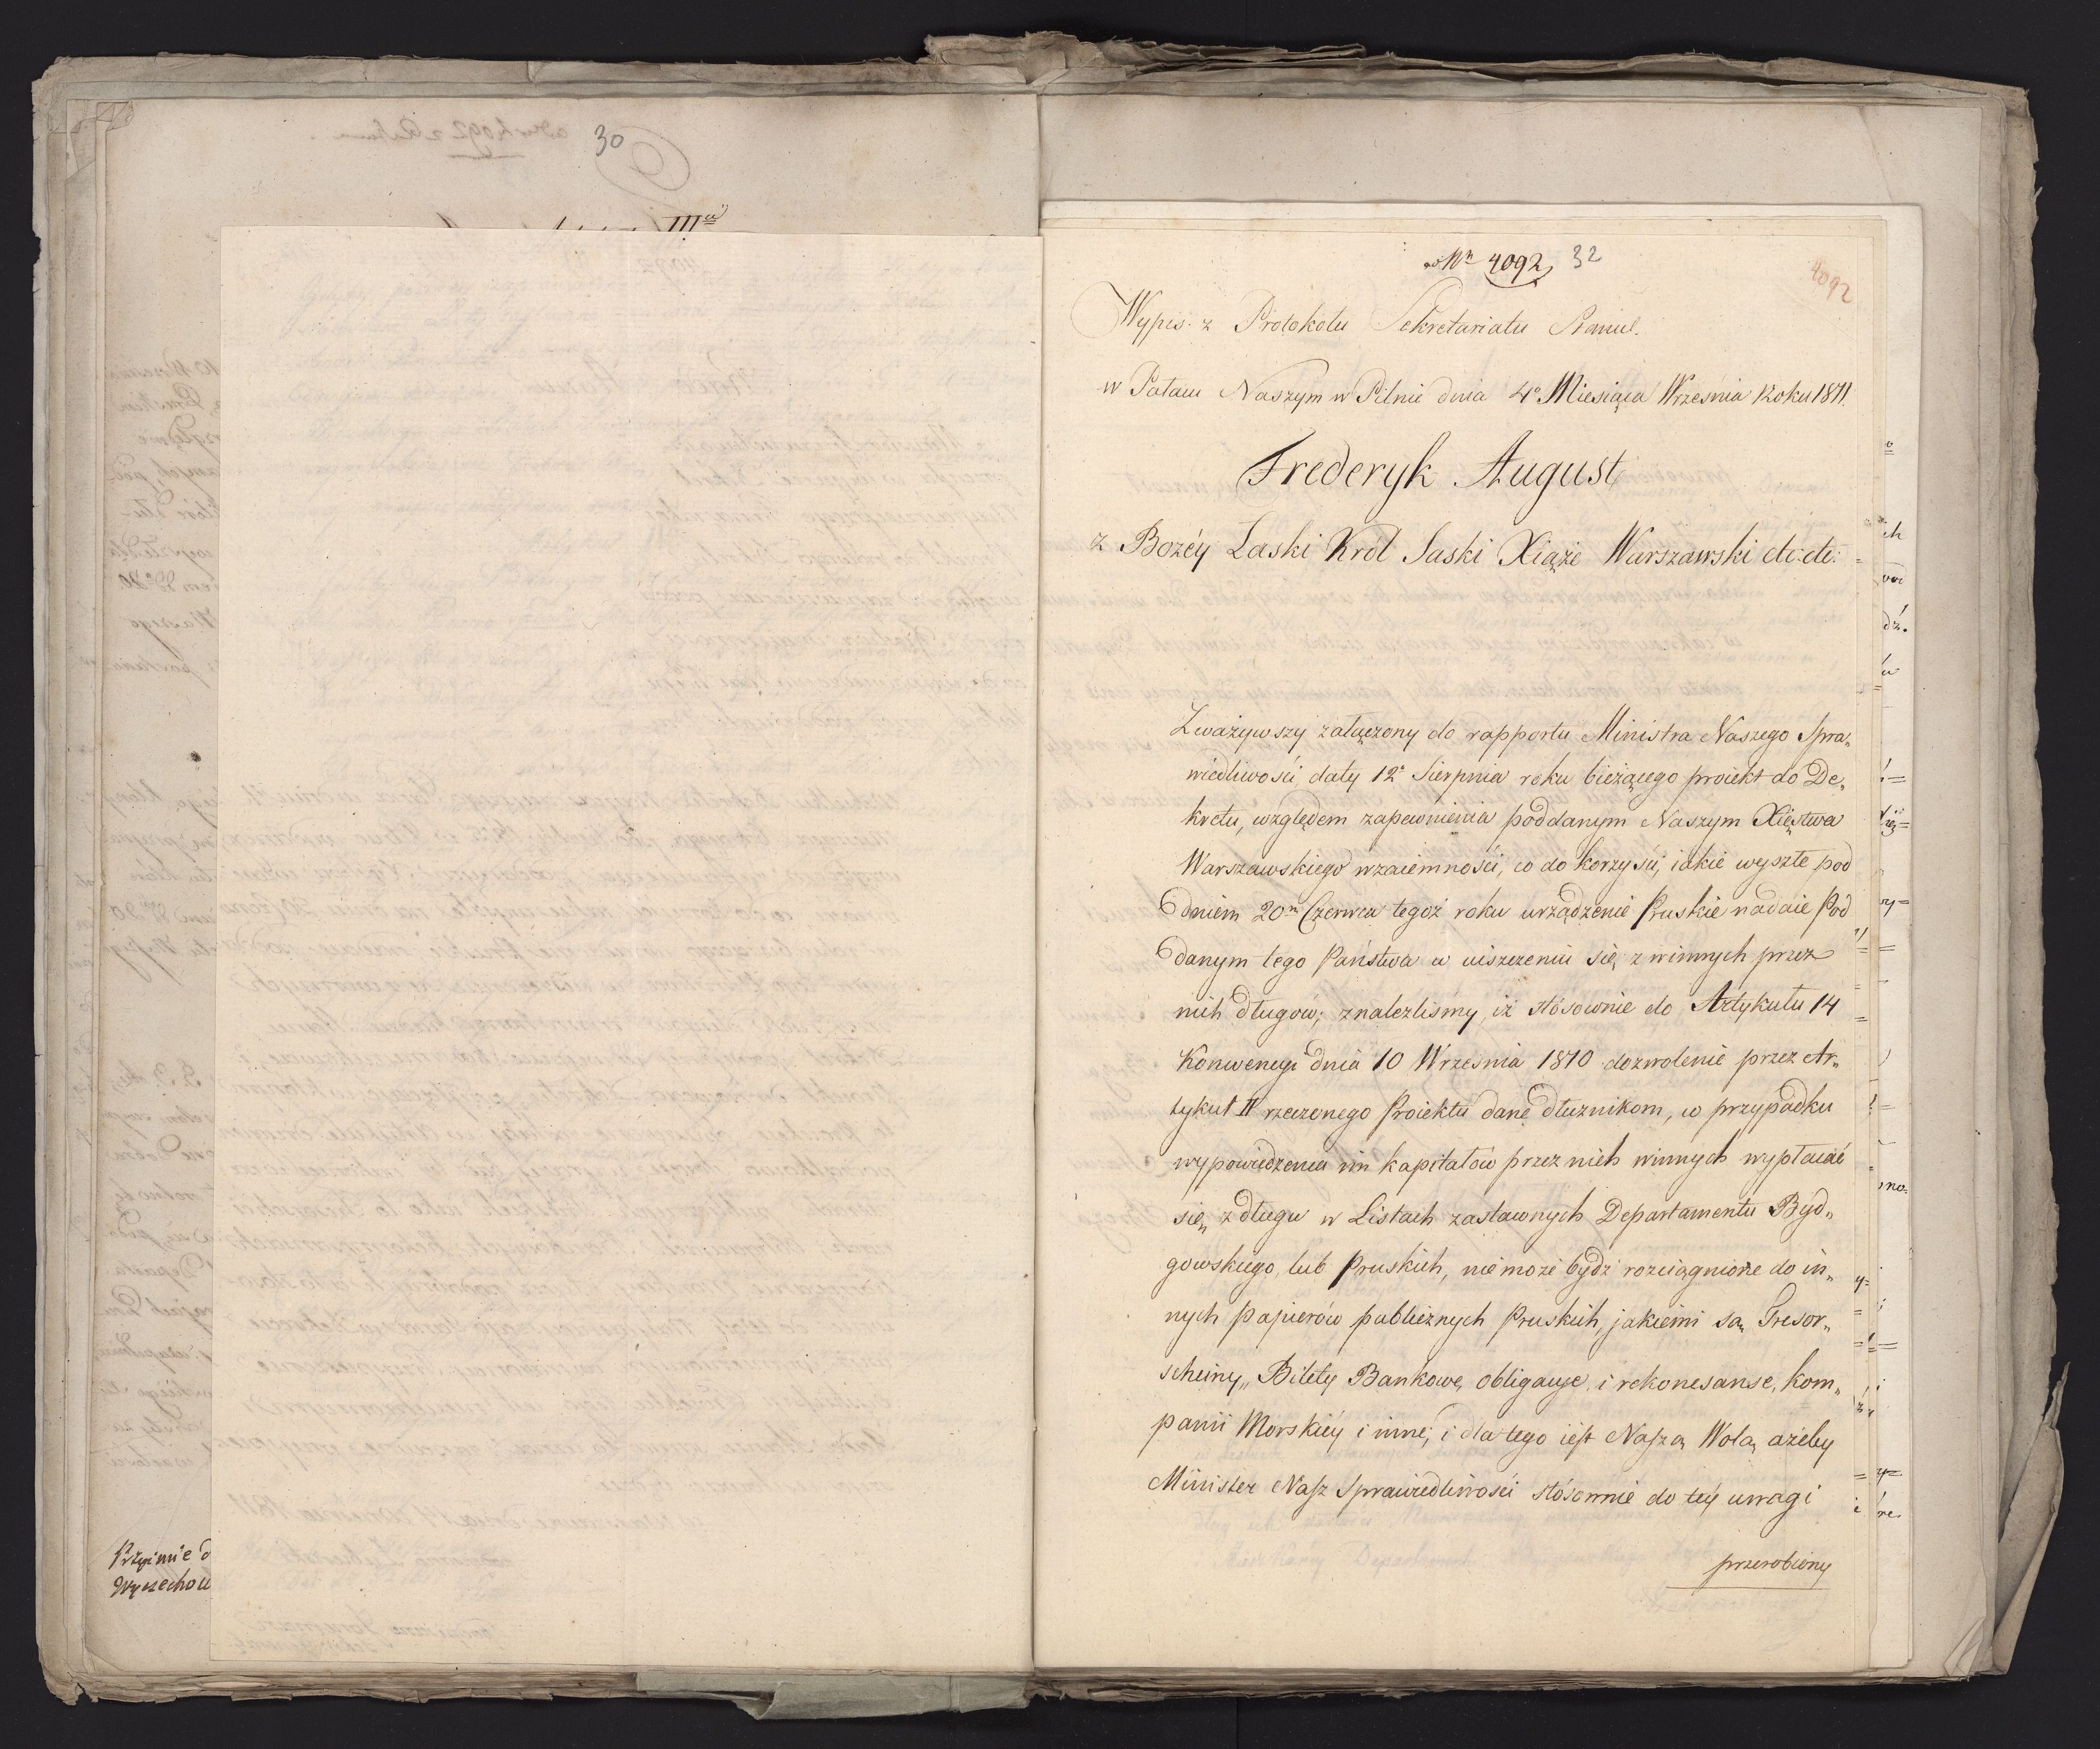 30
III
przyimie d
Wyczechow
ad Nr 4092 32
4092
Wypis z Protokółu Sekretariatu Stanu.
w Pałacu Naszym w Pilnic dnia 4o Miesiąca Września Roku 1811.
Frederyk August
z Bożéy Łaski Król Saski Xiąże Warszawski etc: etc:
Zważywszy załączony do rapportu Ministra Naszego Spra„
wiedliwości daty 12o Sierpnia roku bieżącego proiekt do De„
kretu, względem zapewnienia poddanym Naszym Xięstwa
Warszawskiego wzaiemności, co do korzyści, iakie wyszłe pod
dniem 20m Czerwca tegoż roku urządzenie Pruskie nadaie Pod
danym tego Państwa w uiszczeniu się z winnych przez
nich długów; znaleźliśmy, iż stósownie do Artykułu 14
Konwencyi dnia 10 Września 1810 dozwolenie przez Ar„
tykuł II rzeczonego Proiektu dane dłużnikom, w przypadku
wypowiedzenia im kapitałów przez nich winnych wypłacać
się z długu w Listach zastawnych Departamentu Byd„
gowskiego, lub Pruskich, nie może bydź rozciągnione do in„
nych papierów publicznych Pruskich, jakiemi są Tresor„
scheiny, Bilety Bankowe, obligacye, i rekonesanse, kom„
panii Morskiéy i inne; i dla tego iest Naszą Wolą ażeby
Minister Nasz Sprawiedliwości stósownie do téy uwagi
przerobiony